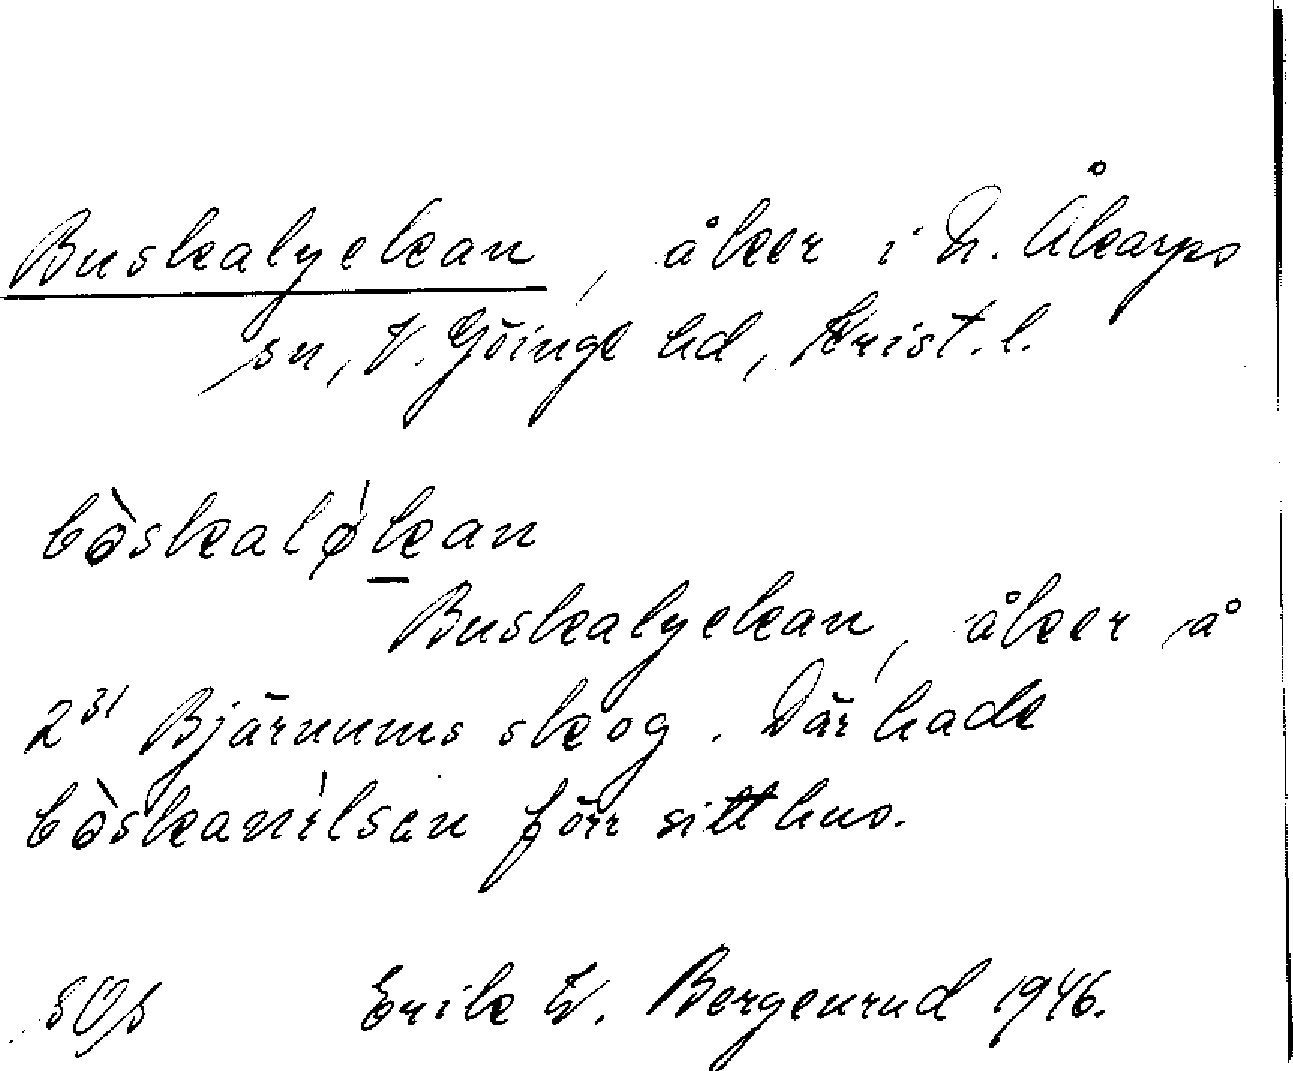 Buskalyckan, åker i N. Åkarps
sn, V. Göinge hd, Krist. l.
bòskaløkan
Buskalyckan, åker å
2³¹ Bjärnums skog. Där hade
bòskanilsen förr sitt hus.
SOS Erik W. Bergenrud 1946.